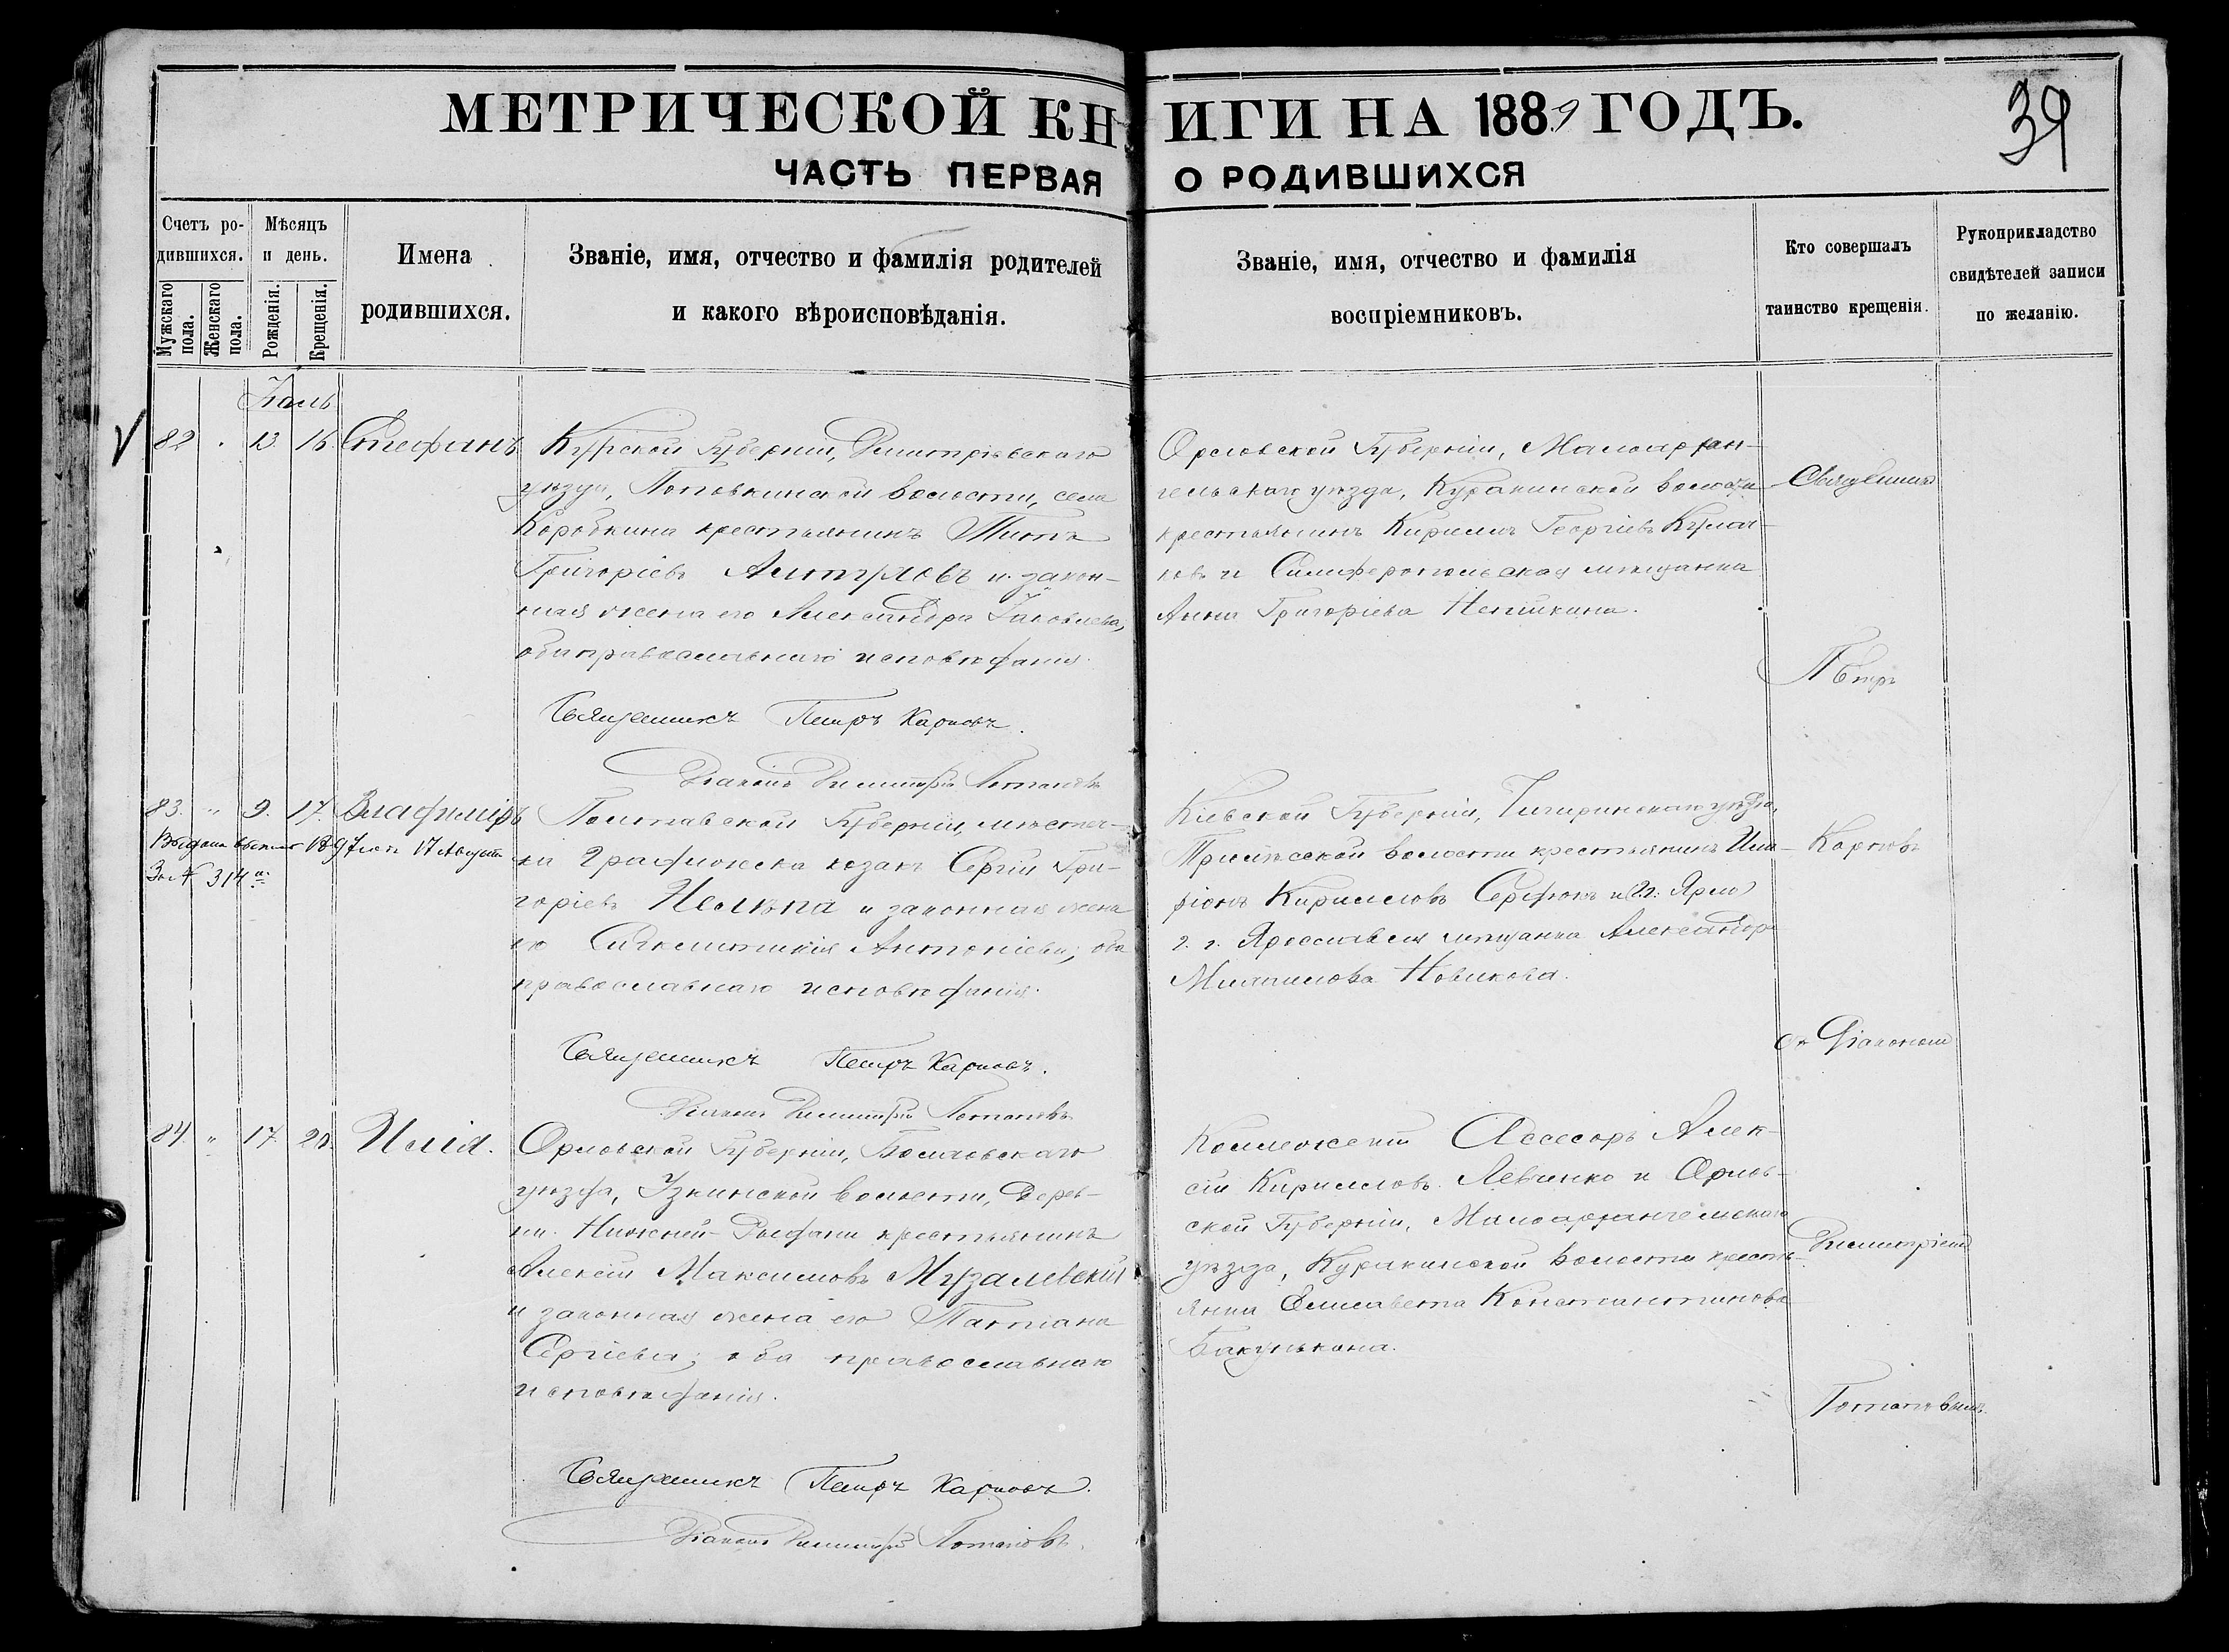 МЕТРИЧЕСКОЙ КНИГИ НА 1889 ГОДЪ.
39
ЧАСТЬ ПЕРВАЯ О РОДИВШИХСЯ
Счетъ ро-
дившихся.
Мужскаго
пола.
Женскаго
пола.
Мѣсяцъ
и день.
Рожденія.
Крещенія.
Имена
родившихся.
Званіе, имя, отчество и фамилія родителей
и какого вѣроисповѣданія.
Званіе, имя, отчество и фамилія
воспріемниковъ.
Кто совершалъ
таинство крещенія.
Рукоприкладство
свидѣтелей записи
по желанію.
82 13 16 Стефанъ
Курской Губерніи, Димитріевскаго
уѣзда, Поповкинской волости, села
Коробкина крестьянинъ Титъ
Григоріевъ и закон-
ная жена его Александра Іаковлева,
оба православнаго исповѣданія.
Священникъ Петръ Карповъ.
Діаконъ Димитрій Потаповъ
Орловской Губерніи, Малоархан-
гельскаго уѣзда, Куракинской волости
крестьянинъ Кириллъ Георгіевъ Кула-
ковъ и Симферопольская мѣщанка
Анна Григоріева
83. " 9. 17. Владиміръ
Выдана выпись 1897 года 17 Августа
За № 314м.
Полтавской Губерніи, мѣстеч-
ка Градижска козакъ Сергій Гри-
горіевъ и законная жена
его Антоніева; оба
православнаго исповѣданія.
Священникъ Петръ Карповъ.
Діаконъ Димитрій Потаповъ
Кіевской Губерніи, Чигиринскаго уѣзда,
волости крестьянинъ Ила-
ріонъ Кирилловъ Сердюкъ и
г. Ярославля мѣщанка Александра
Новикова.
84. " 17. 20. Илія.
Орловской Губерніи, Болховскаго
уѣзда, Узкинской волости, дерев-
ни крестьянинъ
Алексій Максимовъ Музалевскій
и законная жена его Татіана
Сергіева; оба православнаго
исповѣданія.
Священникъ Петръ Карповъ.
Діаконъ Димитрій Потаповъ.
Коллежскій Асессоръ Алек-
сій Кирилловъ Левенко и Орлов-
ской Губерніи, Малоархангельскаго
уѣзда, Куракинской волости кресть-
янка Елисавета Константинова
Священникъ
Петръ
Карповъ
съ Діакономъ
Димитріемъ
Потаповымъ.